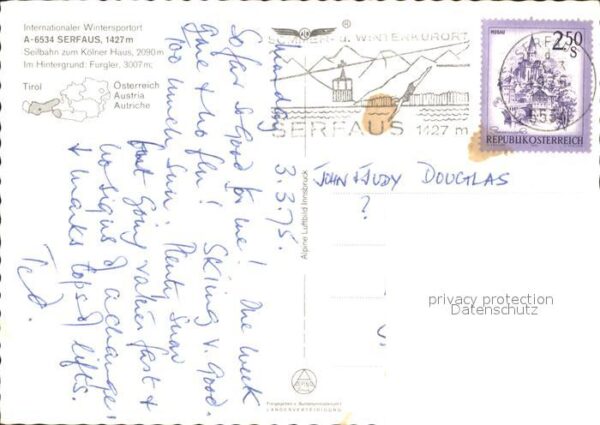 Internationaler Wintersportort
A-6534 SERFAUS, 1427 m
Seilbahn zum Kölner Haus, 2090 m
Im Hintergrund: Furgler, 3007 m;
Tirol
Österreich
Austria
Autriche
Monday
3.3.75.
So far so good for me! One week
gone & no flu! Skiing v. good.
too much sun. Plenty snow
but going rather fast &
no signs of a change.
& marks tops of lifts.
Ted.
Alpine Luftbild Innsbruck
SOMMER- u. WINTERKURORT
SERFAUS 1427 m
2.50
S
MURAU
REPUBLIK ÖSTERREICH
6534
JOHN & JUDY DOUGLAS
?
privacy protection
Datenschutz
LANDESVERTEIDIGUNG